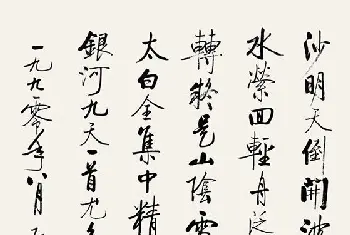 沙明天倒開波
水縈回輕舟泛
轉疑是山陰雪
太白全集中精
銀河九天一首尤
一九九零年八月